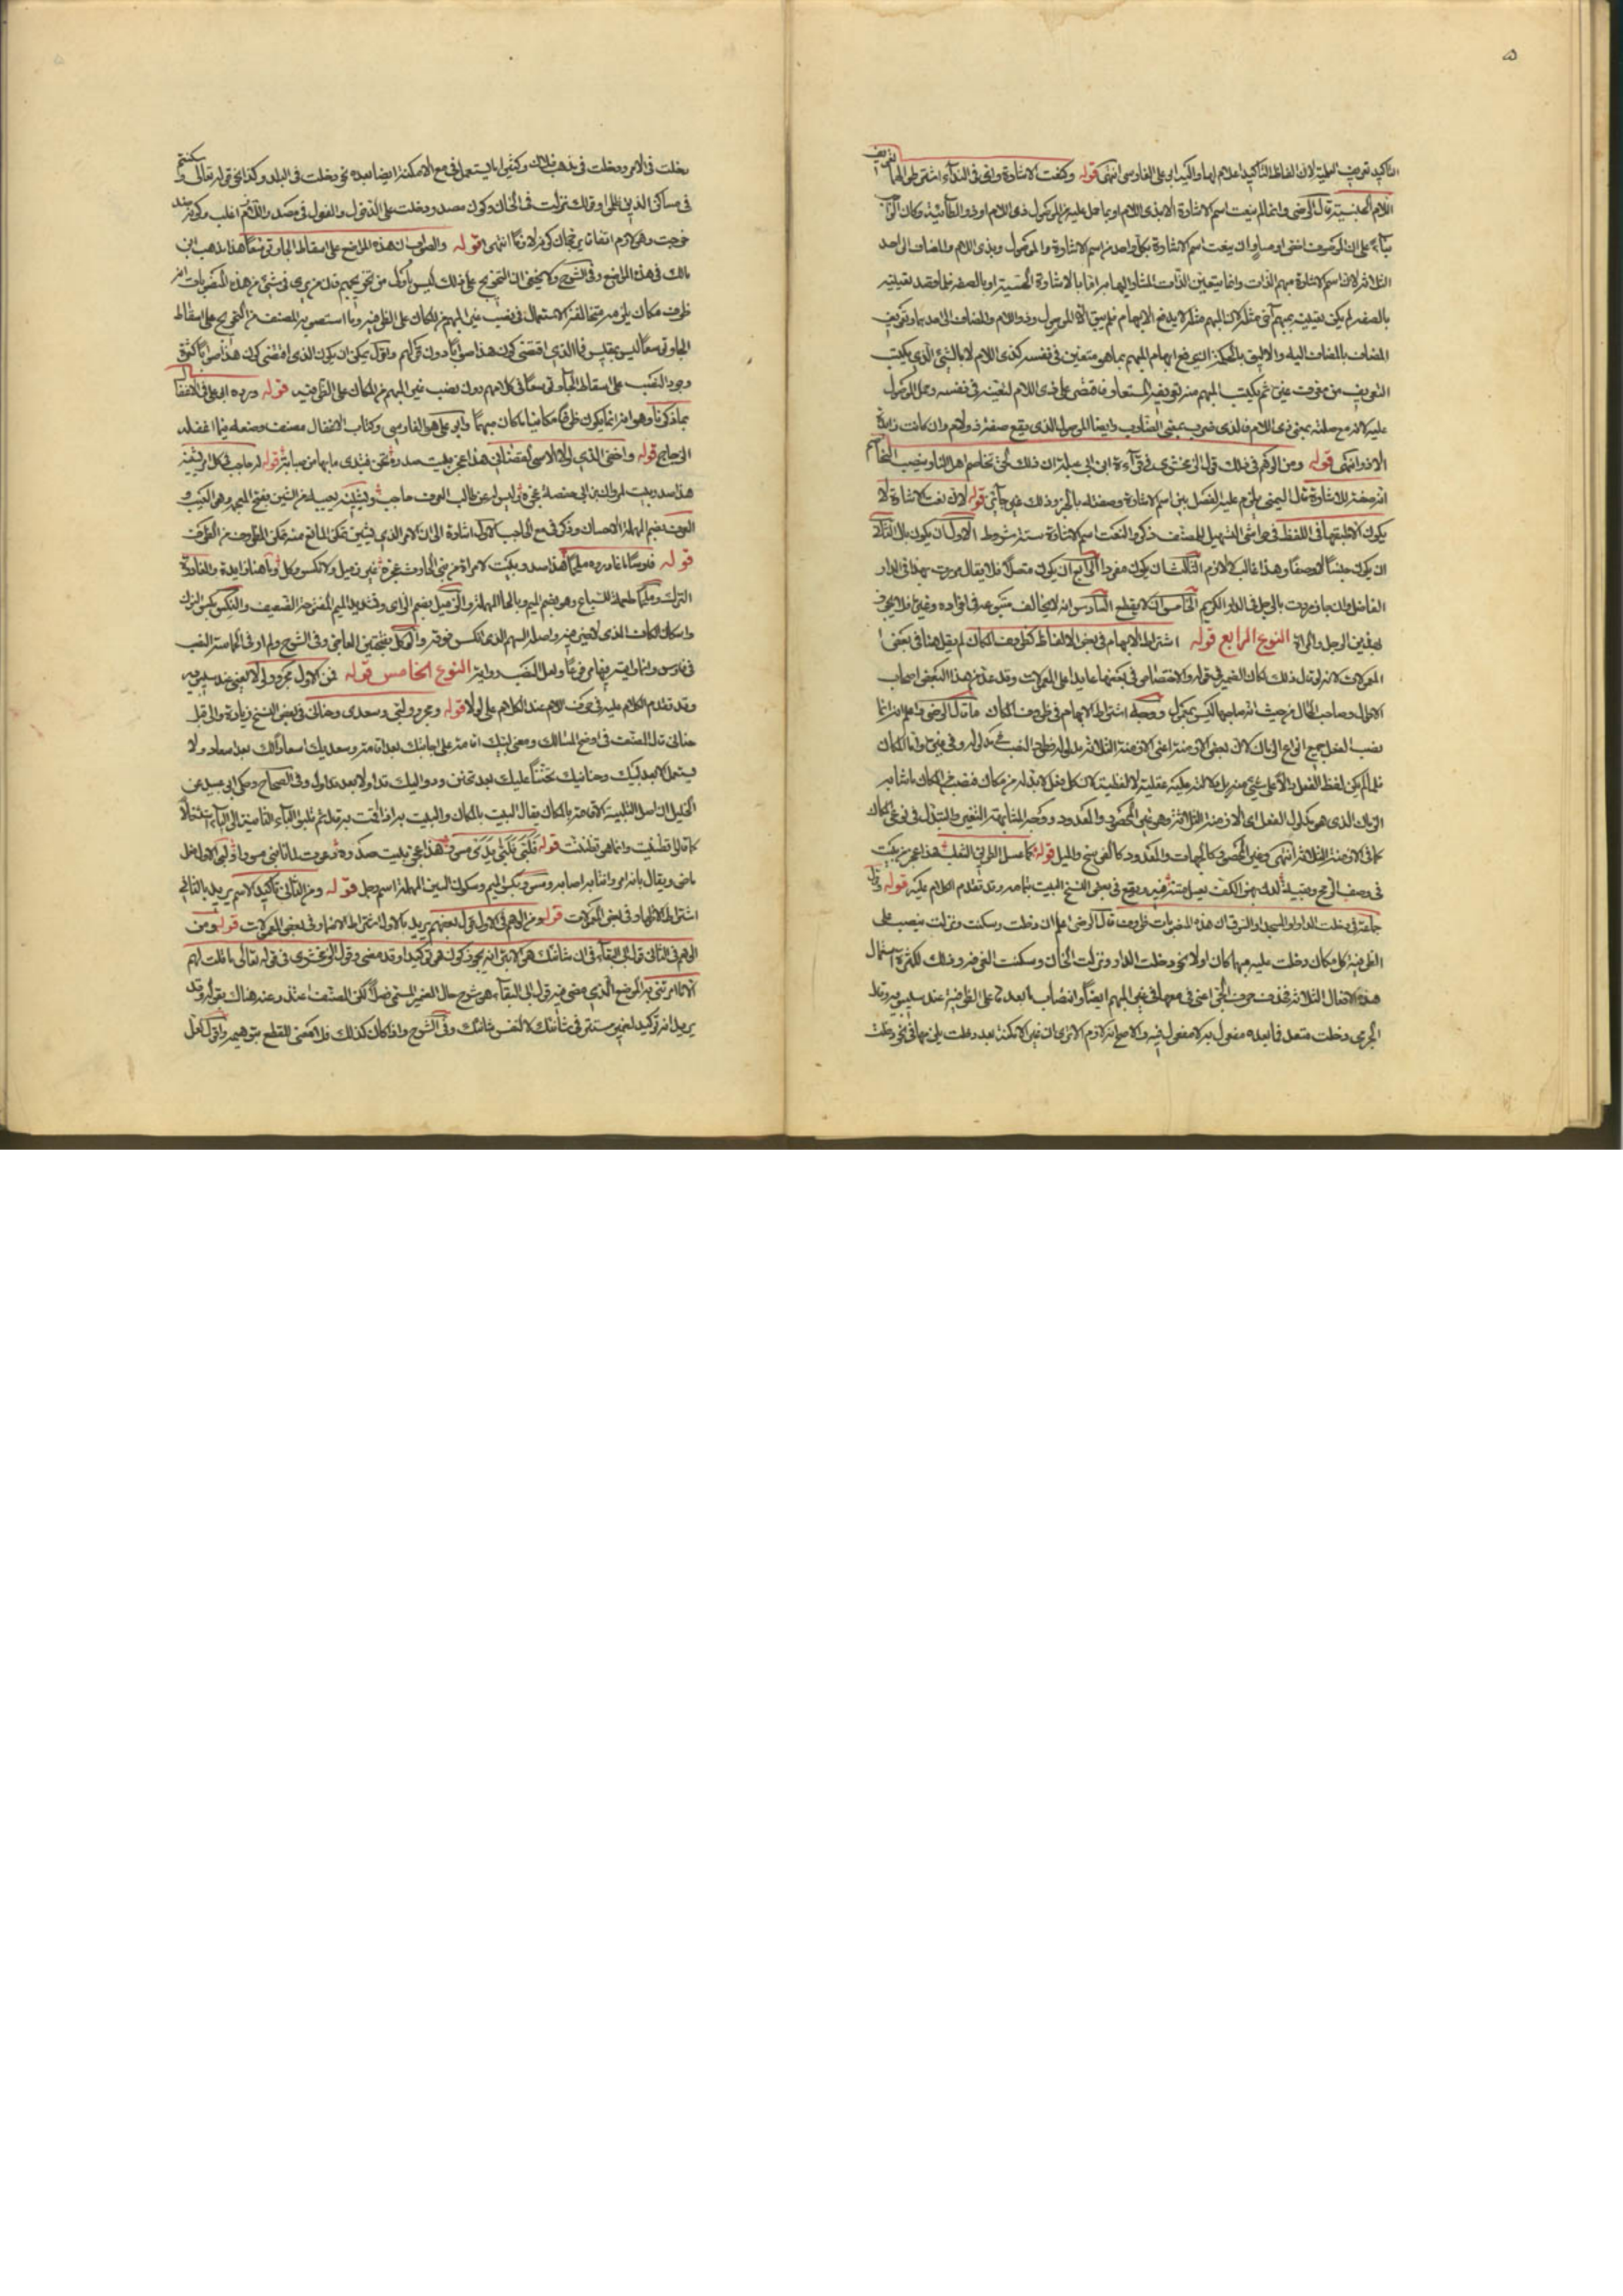 التأكيد تعريف العلمية لان الفاظ التأكيد اعلام لها واليه ابو على الفارسى انتهى قوله وكنعت الاشارة واى فى النداء اشترط لهما تعريف
اللام الجنسية قال الرضى وانما لم ينعت اسم الاشارة الا بذى اللام او بما حمل عليه من الموصول ذى اللام او ذو الطائية
بناء على ان الموصوف اخص او مساو ان ينعت اسم الاشارة بكل واحد من اسم الاشارة والموصول وبذى اللام والمضاف الى احد
الثلاثة لان اسم الاشارة مبهم الذات وانما يتعين الذات المشار اليها به اما بالاشارة الحسية او بالصفة فلما قصد تعيينه
بالصفة لم يمكن تعيينه بمبهم آخر مثله لان المبهم مثله لا يدفع الابهام فلم يبق الا الموصول وذو اللام والمضاف الى احدهما وتعريف
المضاف بالمضاف اليه والاليق بالحكمة ان يدفع ابهام المبهم بما هو متعين فى نفسه كذى اللام لا بالشئ الذى يكتسب
التعريف من معرف غيره ثم يكتسب المبهم منه تعريفه المستعار فاقتصر على ذى اللام لتعينه فى نفسه وحمل الموصول
عليه لانه مع صلته بمعنى ذى اللام فالذى ضرب بمعنى الضارب وايضا الموصول الذى يقع صفة ذو لام وان كانت زائدة
الا ذو انتهى قوله ومن الوهم فى ذلك قول الزمخشرى فى قراءة ابن ابى عبلة ان ذلك لحق تخاصم اهل النار بنصب التخاصم
انه صفة للاشارة قال اليمنى يلزم عليه الفصل بين اسم الاشارة وصفته بالخبر وذلك غير جائز قوله لان نعت الاشارة لا
يكون الا طبقها فى اللفظ فى حواشى التسهيل للمصنف ذكروا لنعت اسم الاشارة ستة شروط الاول ان يكون بال الثانى
ان يكون جنسا لا وصفا وهذا غالب لا لازم الثالث ان يكون مفردا الرابع ان يكون متصلا فلا يقال مررت بهذا فى الدار
الفاضل وان جاز مررت بالرجل فى الدار الكريم الخامس ان لا يقطع السادس انه لا يخالف متبوعه فى افراده وغيره فلا يجوز
بهذين الرجل والمراة النوع الرابع قوله اشتراط الابهام فى بعض الالفاظ كظروف المكان لم يقل هنا فى بعض
المعمولات لانه لو قال ذلك لكان الضمير فى قوله والاختصاص فى بعضها عايدا على المعمولات وقد عد من هذا البعض اصحاب
الاحوال وصاحب الحال من حيث انه صاحبها ليس بمعمول ووجه اشتراط الابهام فى ظروف المكان ما قال الرضى واعلم انه انما
نصب الفعل جميع انواع الزمان لان بعض الازمنة اعنى الازمنة الثلاثة مدلوله فطرد النصب فى مدلوله وفى غيره واما المكان
فلما لم يكن لفظ الفعل دالا على شئ منه بل دلالته عليه عقلية لا لفظية لان كل فعل لا بد له من مكان فنصب من المكان ما شابه
الزمان الذى هو مدلول الفعل اى الازمنة الثلاثة وهو غير المحصور والمعدود ووجه المشابهة التغير والتبدل فى نوعى المكان
كما فى الازمنة الثلاثة انتهى وغير المحصور كالجهات والمعدود كالفرسخ والميل قوله كما عسل الطريق الثعلب هذا عجز بيت
فى وصف الرمح وقبله لدن بهز الكف يعسل متنه فيه ويقع فى بعض النسخ البيت بتمامه وقد تقدم الكلام عليه قوله وقول
جماعة فى دخلت الدار او المسجد او السوق ان هذه المنصوبات ظروف قال الرضى اعلم ان دخلت وسكنت ونزلت ينصب على
الظرفية كل مكان دخلت عليه مبهما كان او لا نحو دخلت الدار ونزلت الخان وسكنت الغرفة وذلك لكثرة استعمال
هذه الافعال الثلاثة فحذف حرف الجر اعنى فى معها فى غير المبهم ايضا وانتصاب ما بعدها على الظرفية عند سيبويه وقال
الجرمى دخلت متعد فما بعده مفعول به لا مفعول فيه والاصح انه لازم الا ترى ان غير الامكنة بعد دخلت يلزمها فى نحو دخلت
دخلت فى الامر ودخلت فى مذهب فلان وكثيرا ما يستعمل فى مع الامكنة ايضا بعده نحو دخلت فى البلد وكذا نحو قوله تعالى وسكنتم
فى مساكن الذين ظلموا وقولك نزلت فى الخان وكون مصدر دخلت على الدخول والفعول فى مصدر اللازم اغلب وكونه ضد
خرجت وهو لازم اتفاقا يرجحان كونه لازما انتهى قوله والصواب ان هذه المواضع على اسقاط الجار توسعا هذا مذهب ابن
مالك فى هذه المواضع وفى الشرح ولا يخفى ان التخريج على ذلك ليس باولى من تخريجهم فان من يرى فى شئ من هذه المنصوبات انه
ظرف مكان يلزمه مخالفة الاستعمال فى نصب غير المبهم من المكان على الظرفية وما استصوبه المصنف من التخريج على اسقاط
الجار توسعا ليس بمقيس فما الذى اقتضى كون هذا صوابا دون قولهم واقول يمكن ان يكون الذى اقتضى كون هذا صوابا كثرة
وجود النصب على اسقاط الجار توسعا فى كلامهم دون نصب غير المبهم من المكان على الظرفية قوله ورده ابو على فى الاغفال
بما ذكرنا وهو انه انما يكون ظرفا مكانيا ما كان مبهما وابو على هو الفارسى وكتاب الاغفال مصنف وضعه فيما اغفله
الزجاج قوله واخفى الذى لولا الاسى لقضانى هذا عجز بيت صدره تحن فتبدى ما بها من صبابة قوله له حاجب فى كل امر يشينه
هذا صدر بيت لمروان بن ابى حفصة عجزه وليس له عن طالب العرف حاجب ويشينه بعيبه من الشين بفتح المعجمة وهو العيب و
العرف بضم المهملة الاحسان
قوله فارسا ما غادروه ملحما هذا صدر بيت لامراة من بنى الحارث عجزه غير زميل ولا نكس وكل وما هنا زايدة والمغادرة
الترك وملحما طعمة للسباع وهو بضم الميم وبالحاء المهملة والزميل بضم الزاى وتشديد الميم المفتوحة الضعيف والنكس بكسر النون
واسكان الكاف الذى لا خير فيه واصله السهم الذى انكس فوقه والوكل بفتحتين العاجز وفى الشرح ولم ار فى الحماسة النصب
فى فارس وانما رايته فيها مرفوعا ولعل النصب رواية النوع الخامس قوله فمن الاول مجرور لولا يعنى عند سيبويه
وقد تقدم الكلام عليه فى حرف اللام عند الكلام على لولا قوله ومجرور لبى وسعدى وحنانى فى بعض النسخ زيادة والى قبل
حنانى قال المصنف فى اوضح المسالك ومعنى لبيك اقامة على اجابتك بعد اقامة وسعديك اسعادا لك بعد اسعاد ولا
يستعمل الا بعد لبيك وحنانيك تحننا عليك بعد تحنن ودواليك تداولا بعد تداول وفى الصحاح وحكى ابو عبيد عن
الخليل ان اصل التلبية الاقامة بالمكان يقال البيت بالمكان والبيت به اذا اقمت به قال ثم قلبوا الباء الثانية الى الياء استثقالا
كما قالوا تظنيت وانما هو تظننت قوله فلبى فلبى يدى مسور هذا عجز بيت صدره دعوت لما نابنى مسورا فلبى الاول فعل
ماض ويقال نابه امر وانتابه اصابه ومسور بكسر الميم وسكون السين المهملة اسم رجل قوله ومن الثانى تأكيد الاسم يريد بالثانى
اشتراط الاظهار فى بعض المعمولات قوله ومن الوهم فى الاول قول بعضهم يريد بالاول اشتراط الاضمار فى بعض المعمولات قوله ومن
الوهم فى الثانى قول ابى البقاء فى ان شانئك هو الابتر انه يجوز كون هو توكيدا وقد مضى وقول الزمخشرى فى قوله تعالى ما قلت لهم
الا ما امرتنى به الموضع الذى مضى فيه قول ابى البقاء هو شرح حال الضمير المسمى فصلا لكن المصنف اعتذر عنه هناك بقوله وقد
يريد انه توكيد لضمير مستتر فى شانئك لا لنفس شانئك وفى الشرح واذا كان كذلك فلا معنى للقطع بتوهيمه واقول لعل